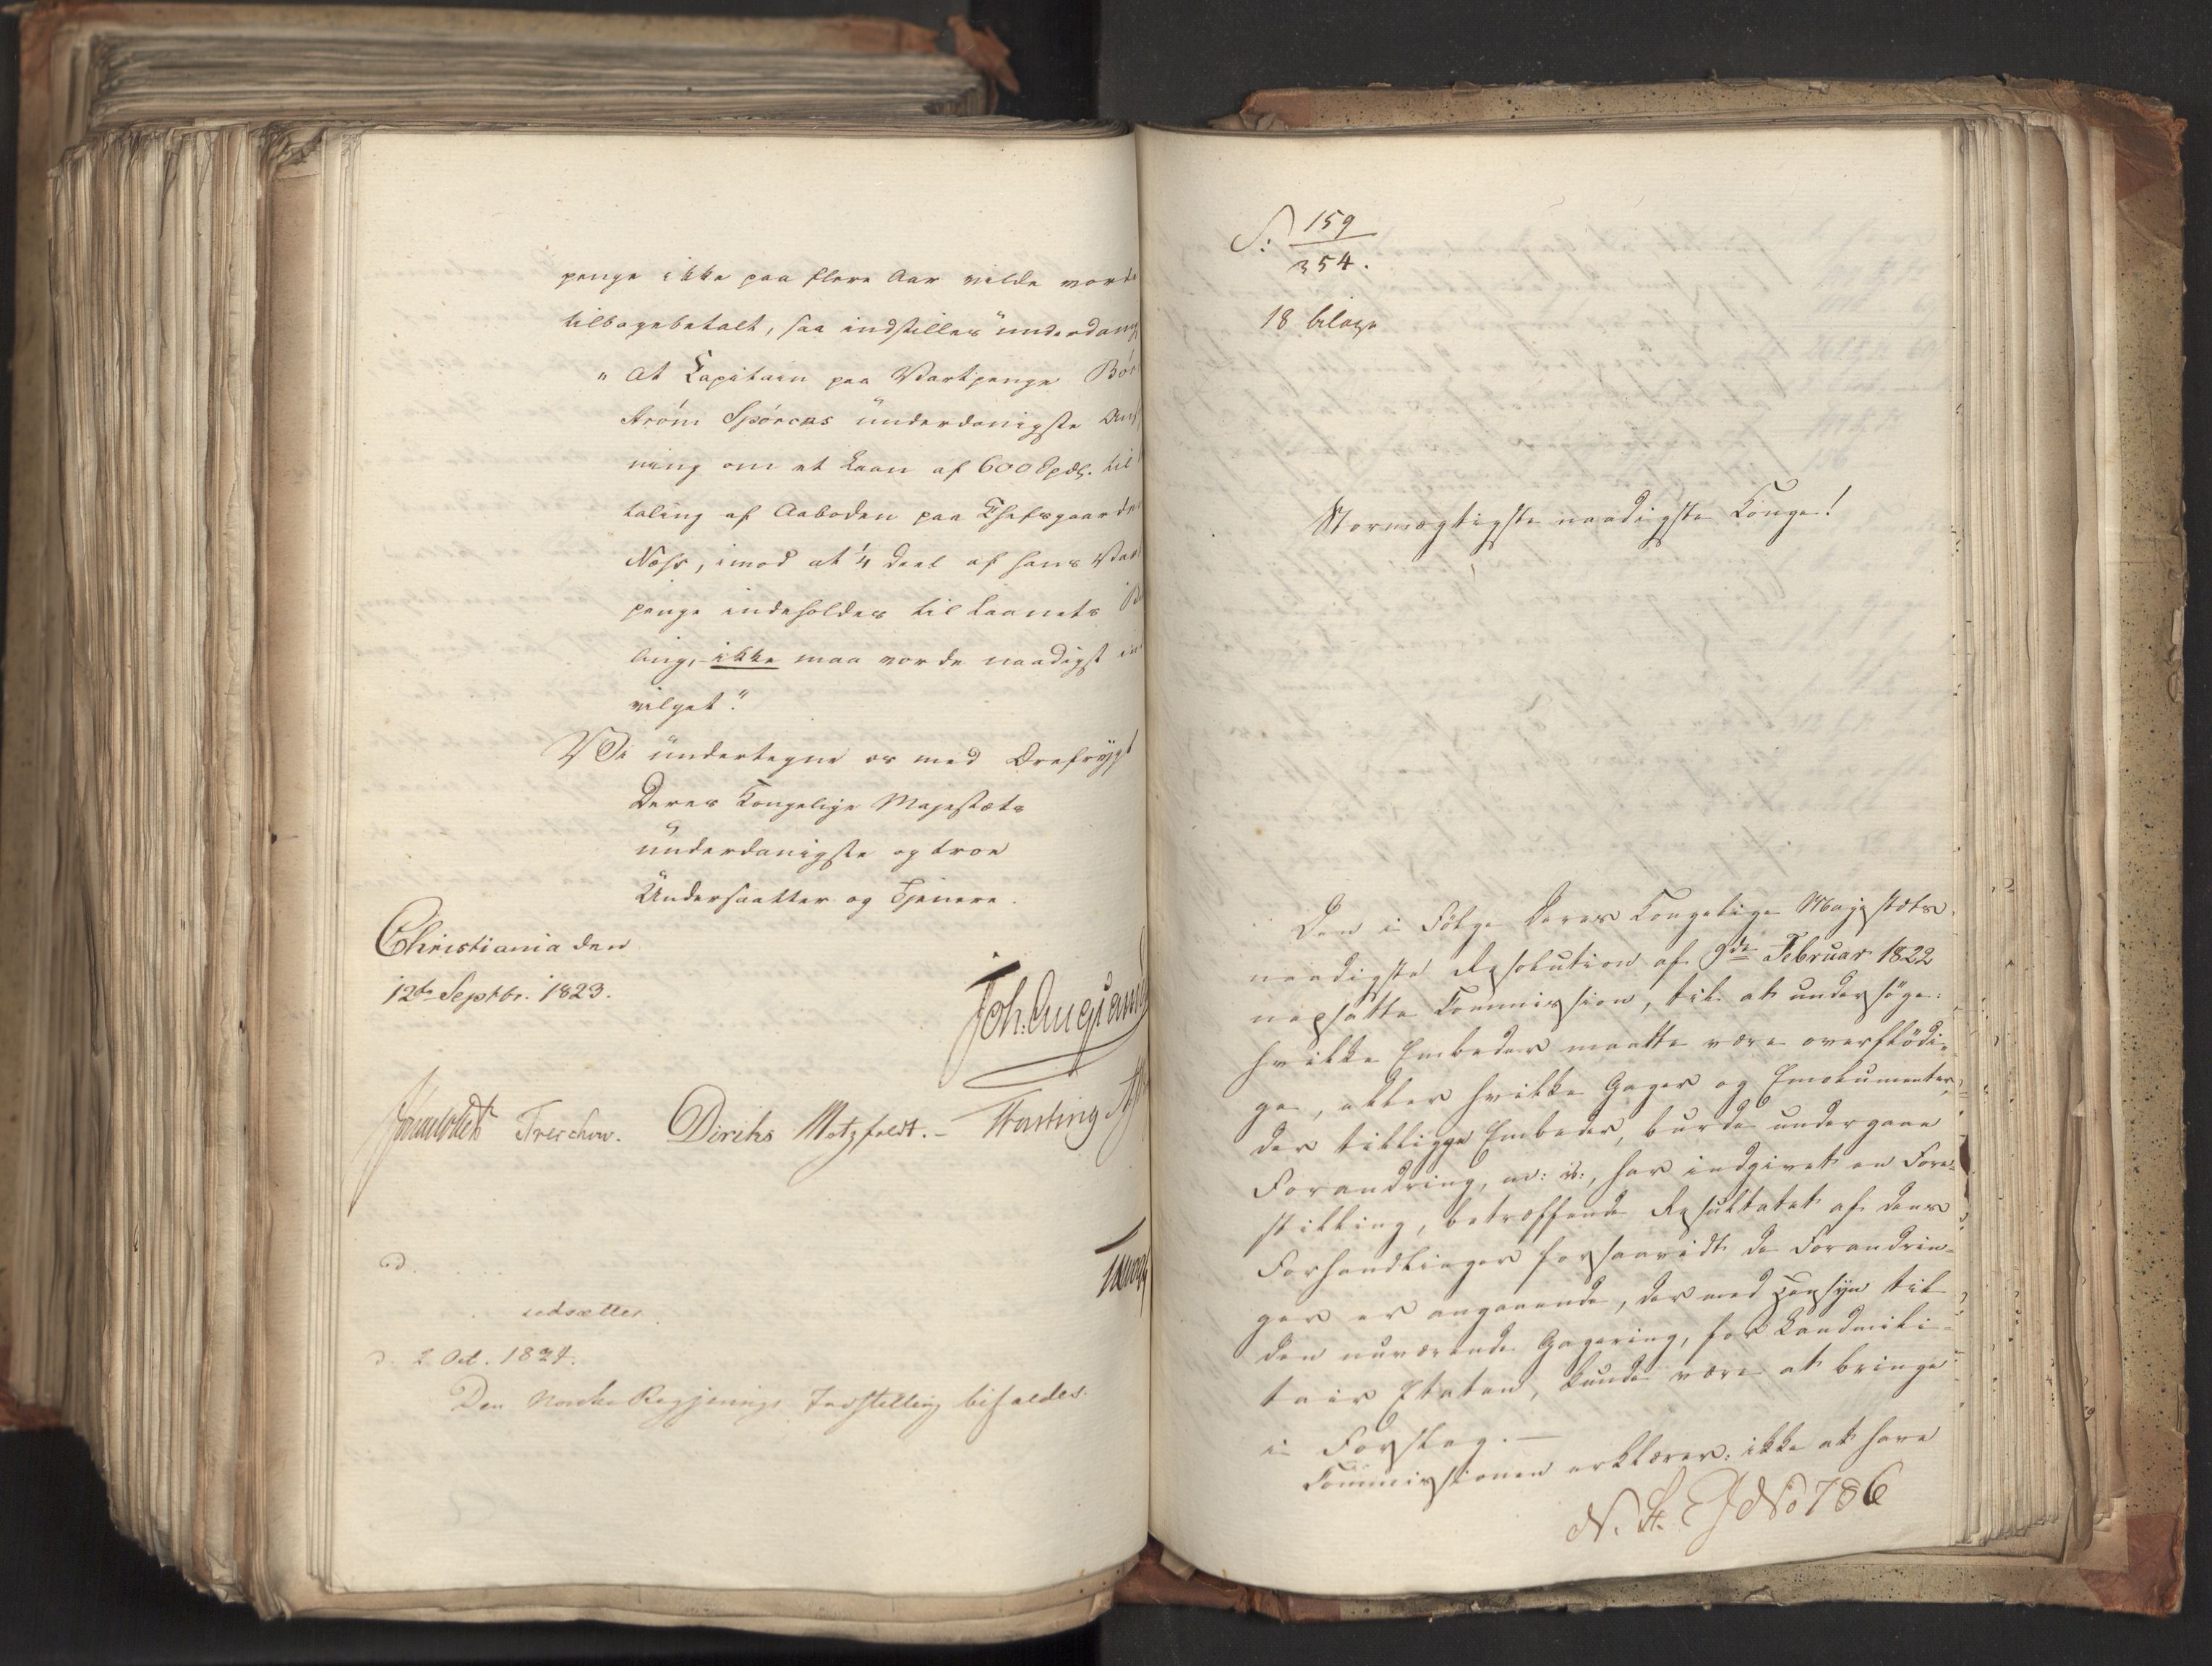 penge ikke paa flere Aar vilde vorde
tilbagebetalt, saa indstilles underdanig
" At Capitain paa Vartpenge Bör
ström Spörcks underdanigste Ans
ning om et Laan af 600 Spdlr. til
taling af Aaboden paa Chefsgaarden
Næss, imod at 1/4 Deel af hans Var
penge indeholdes til Laanets
ling, ikke maa vorde naadigst
vilget."
Vi undertegne os med Ærefrygt
Deres Kongelige Majestæts
underdanigste og troe
Undersaatter og Tjenere.
Christiania den
12te Septbr. 1823.
Joh. Aug. Sand
Treschow. Diriks Motzfeldt. Fasting
udsættes.
d. 2 Oct. 1824.
Den Norske Regjerings Indstilling bifaldes.
S: 159
354.
18 bilage
Stormægtigste naadigste Konge!
Den i Følge Deres Kongelige Majestæts
naadigste Resolution af 9de Februar 1822
nedsatte Commission, til at undersöge:
hvilke Embeder maatte være overflödi-
ge, eller hvilke Gager og Emolumenter,
der tilligge Embeder, burde undergaae
Forandring, m: v:, har indgivet en Fore-
stilling, betræffende Resultatet af dens
Forhandlinger forsaavidt de Forandrin-
ger er angaaende, der med Hensyn til
den nuværende Gagering, for Landmili-
tair Etaten, kunde være at bringe
i Forslag. —
Commissionen erklærer: ikke at have
N. St. J No 786